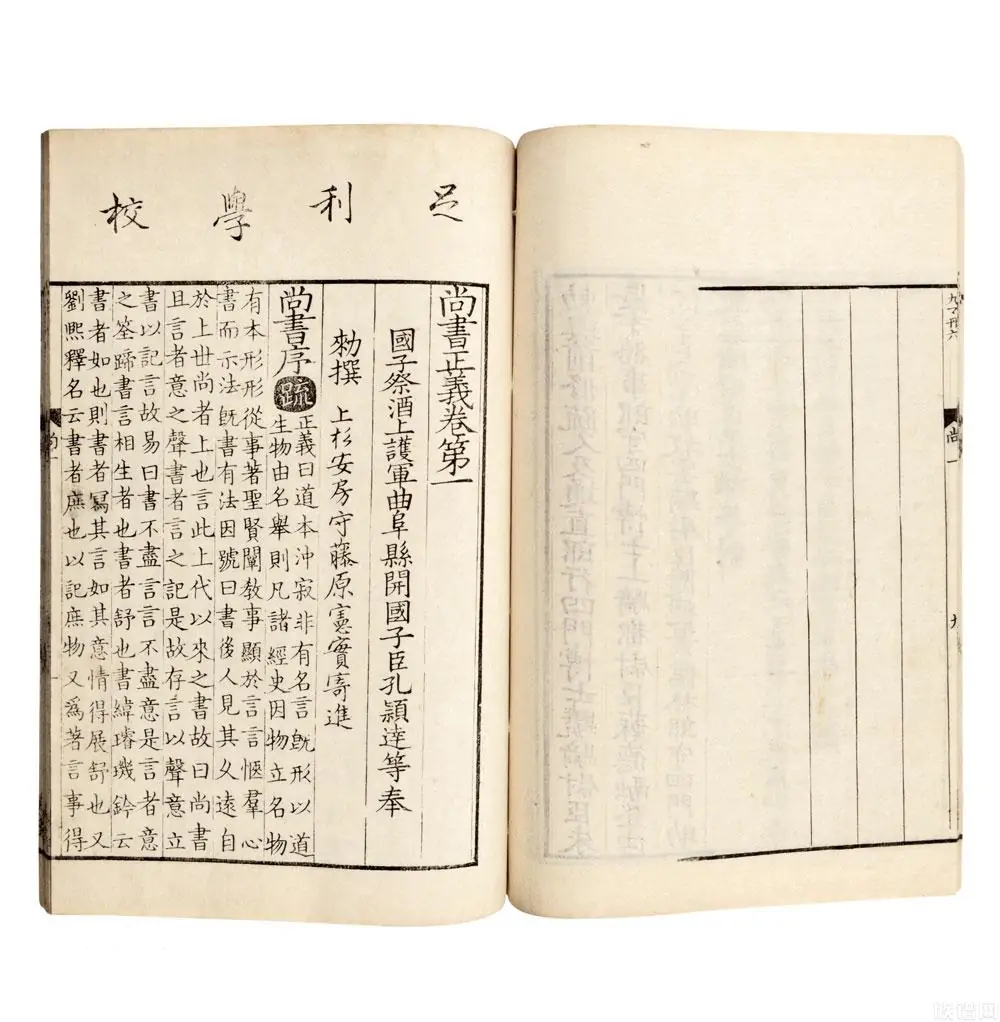 尚一
足利學校
尚書正義卷第一
國子祭酒上護軍曲阜縣開國子臣孔穎達等奉
勑撰 上杉安房守藤原憲實寄進
尚書序 疏
正義曰道本沖寂非有名言既形以道
生物由名舉則凡諸經史因物立名物
有本形形從事著聖賢闡教事顯於言言愜羣心
書而示法既書有法因號曰書後人見其久遠自
於上世尚者上也言此上代以來之書故曰尚書
且言者意之聲書者言之記是故存言以聲意立
書以記言故易曰書不盡言言不盡意是言者意
之筌蹄書言相生者也書者舒也書緯璿璣鈐云
書者如也則書者寫其言如其意情得展舒也又
劉熈釋名云書者庶也以記庶物又爲著言事得
族谱网